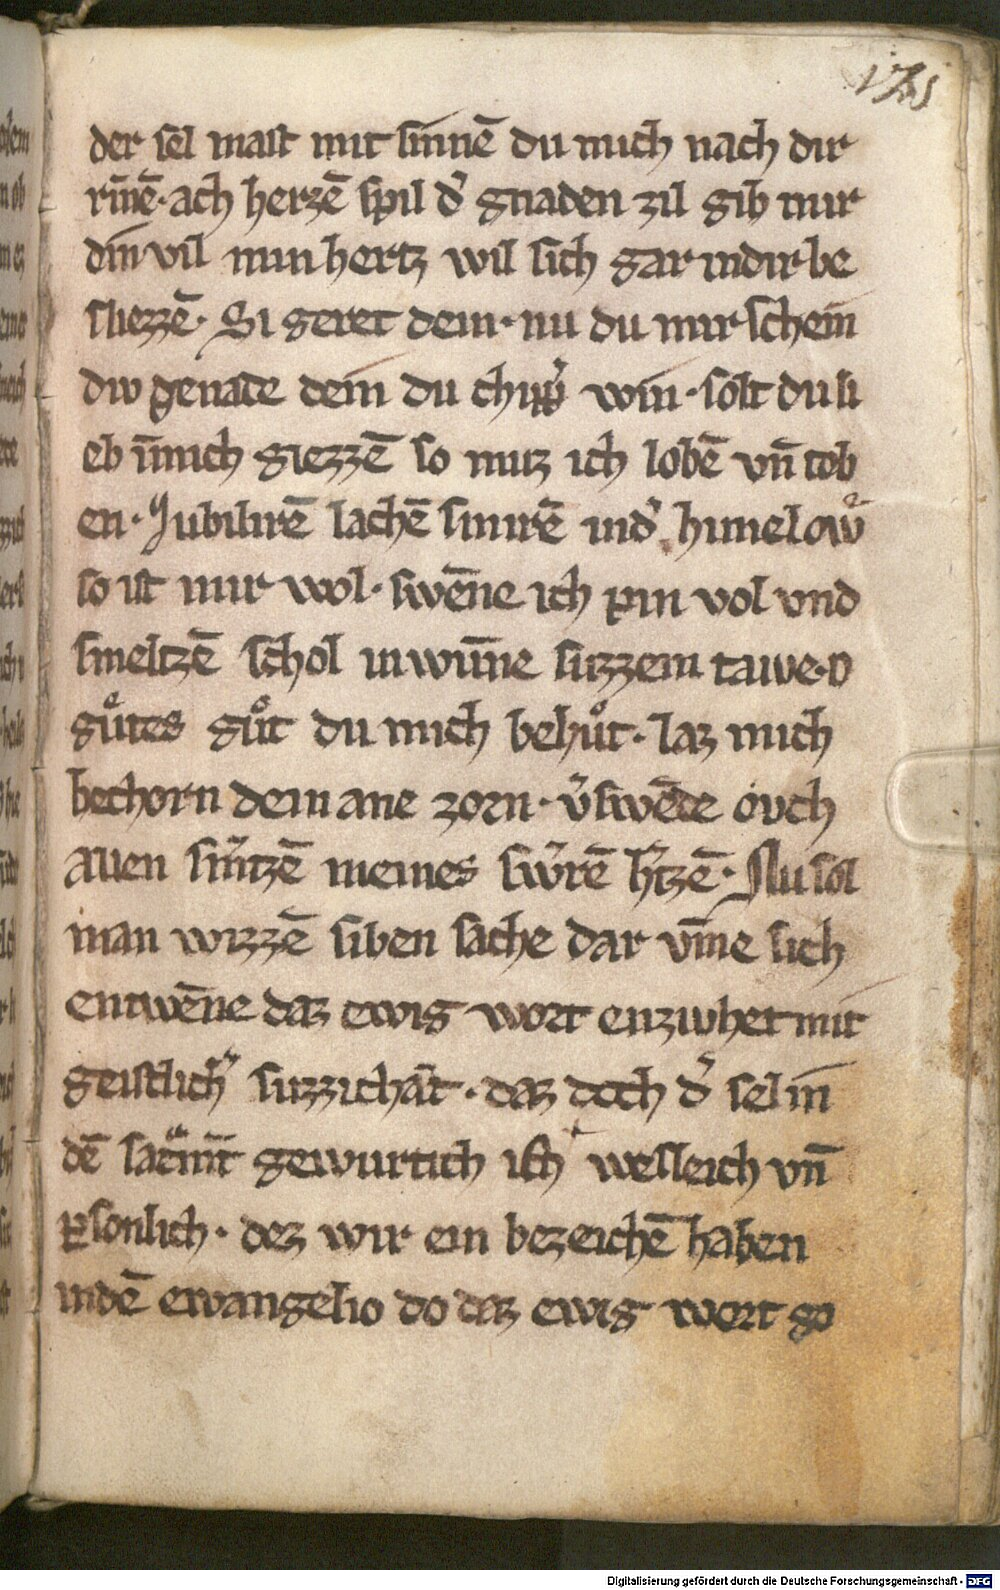 175
der sel mast mit sinnē du mich nach dir
rinē·ach herzē spil d' gnaden zil gib mir
din vil min hertz wil sich gar in dir be
sliezzē· Si geret dem·nu du mir schein
diw genade dein du win·solt du li
eb īmich giezzē so muz ich lobē vn̄ tob
en·Jubilirē lachē smirē in d' himelow
so ist mir wol·swēne ich pin vol vnd
smeltzē schol in wūne suzzem tawe·O
gůtes gůt du mich behůt·laz mich
bechorn dem ane zorn·v'swēde ouch
allen sm'tzē meines sw'rē h'tzē·Nu sol
man wizzē siben sache dar vm̄e sich
entwēne daz ewig wort enziwhet mit
geistlich' suzzichāit·daz doch d' sel in
dē sac̄mt gewurtich ist wesleich vn̄
p̱sonlich·dez wir ein bezeichē haben
in dē ewangelio do daz ewig wort go
Digitalisierung gefördert durch die Deutsche Forschungsgemeinschaft - DFG